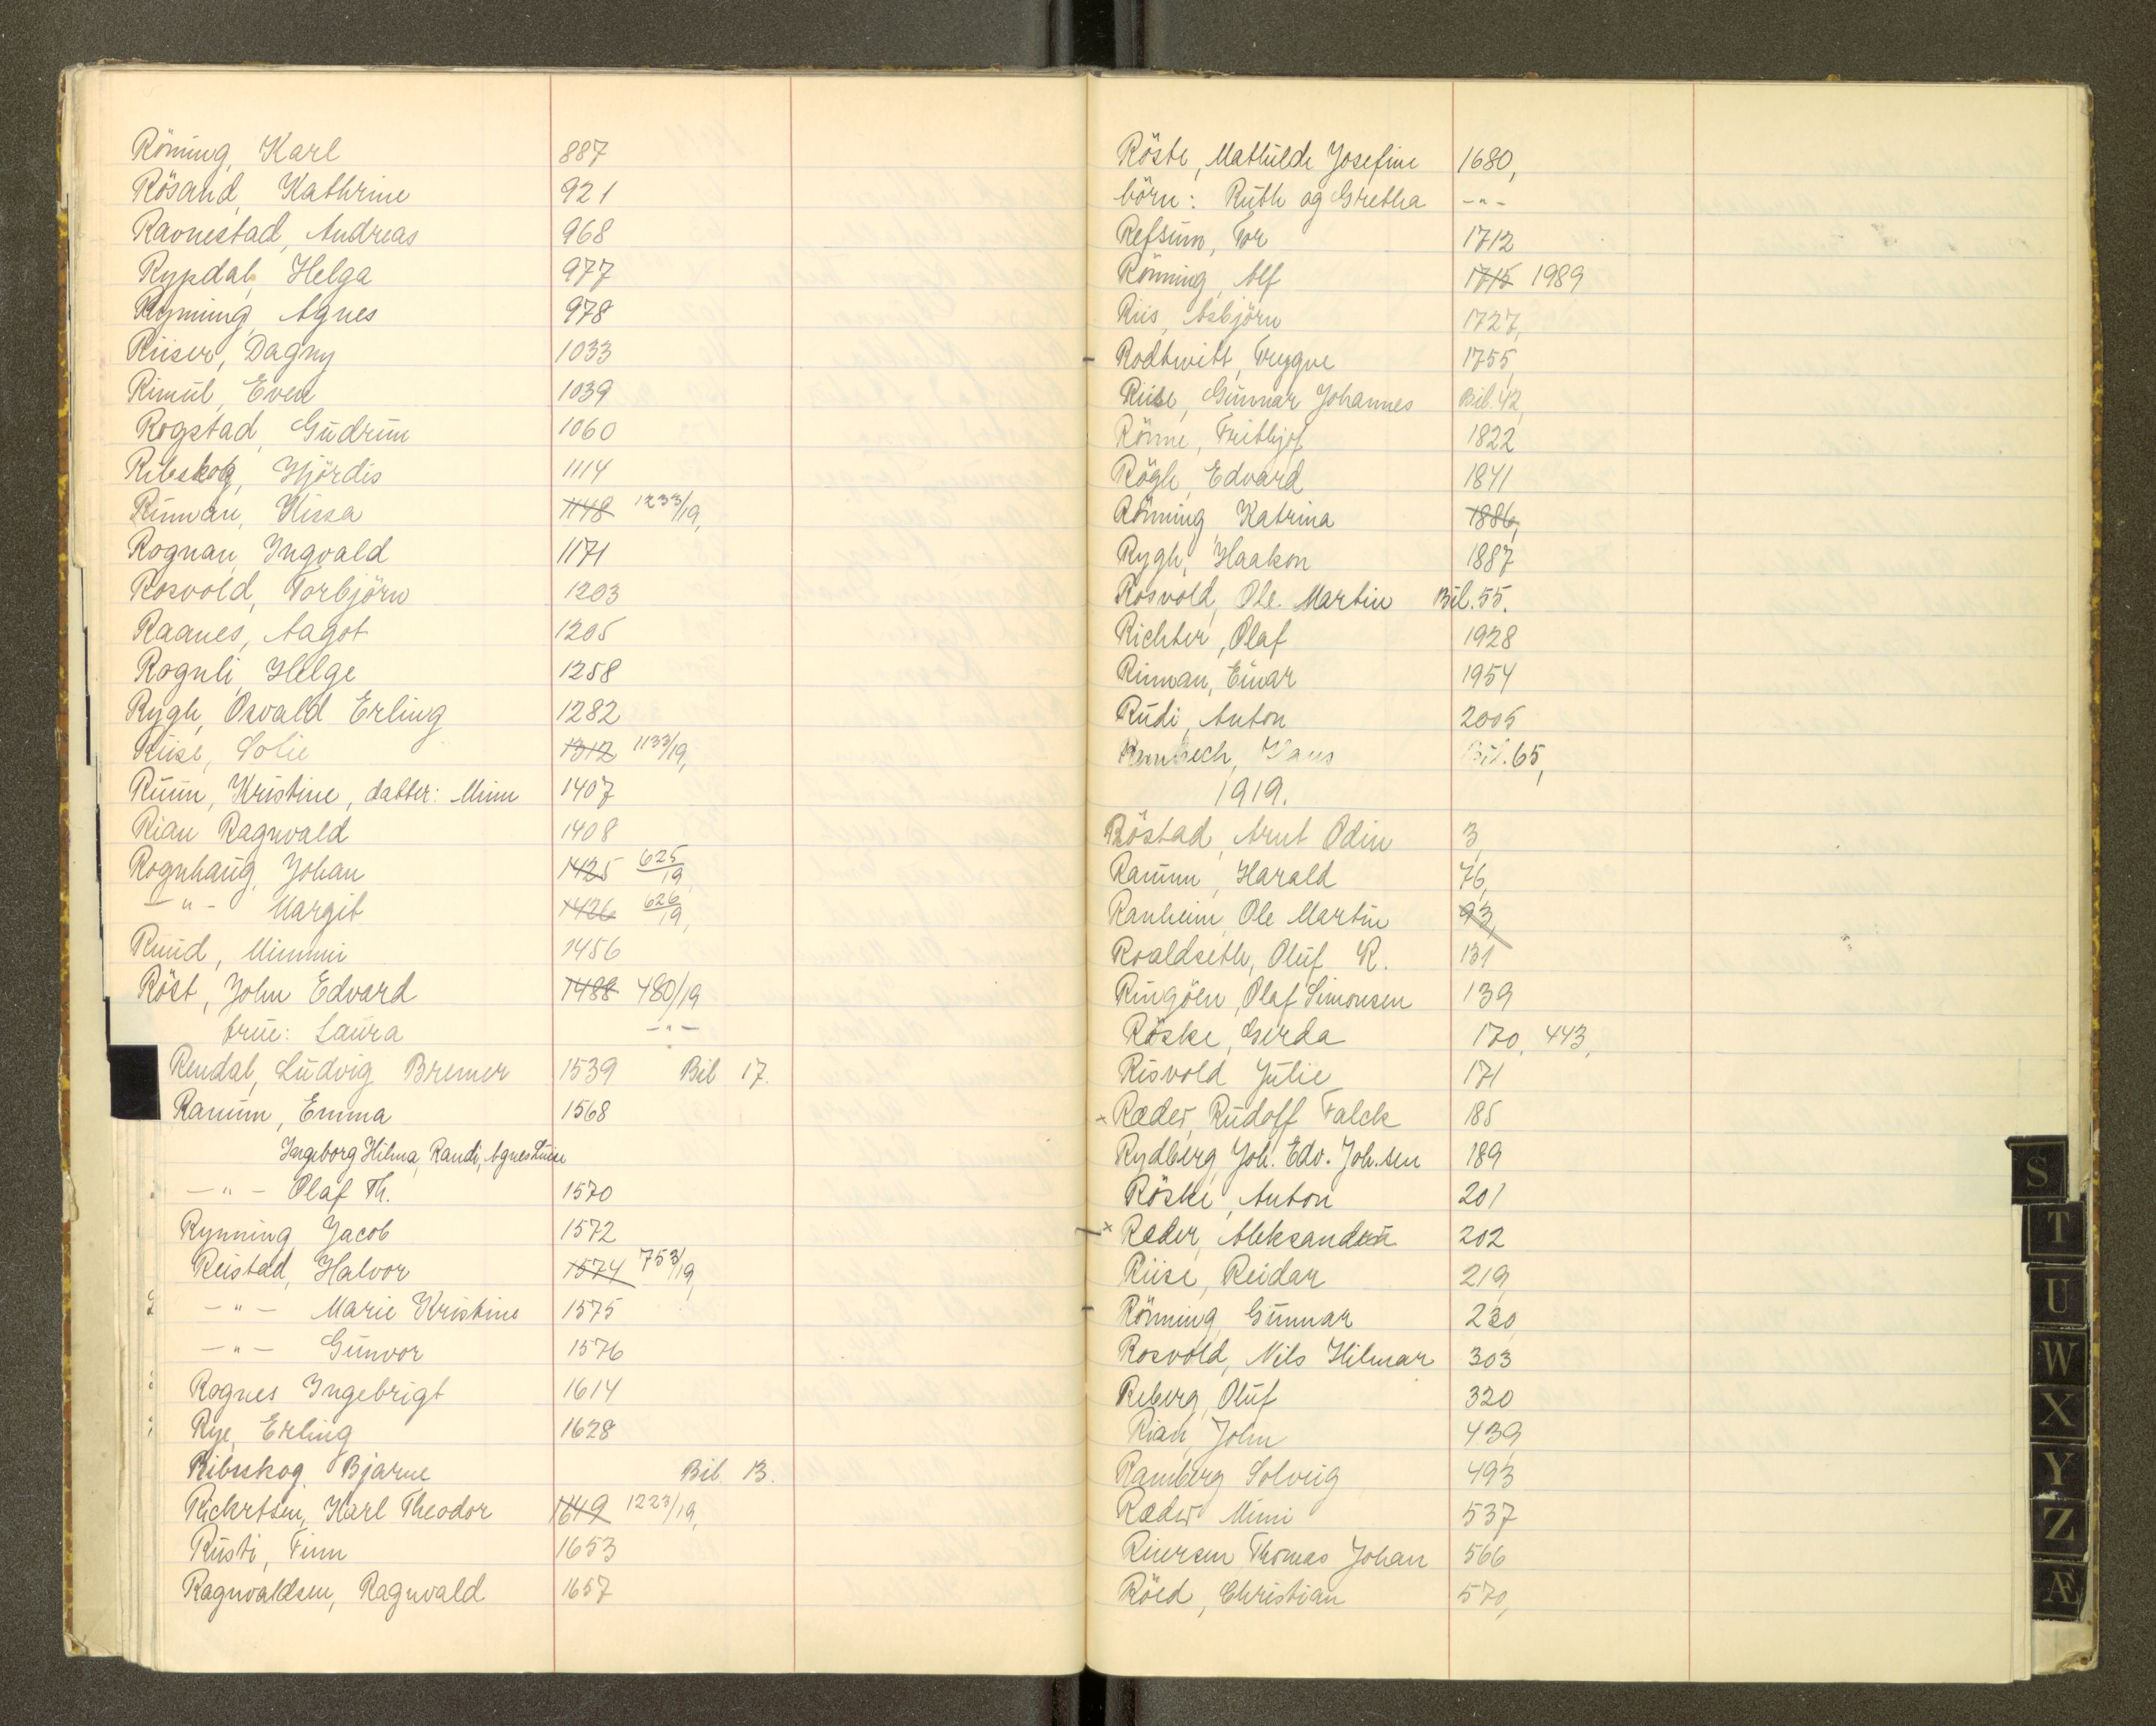 Röning, Karl 887
Rösand, Kathrine 921
Ravnestad, Andreas 968
Rypdal, Helga 977
Ryming, Agnes 978
Riiser, Dagny 1033
Rimul, Even 1039
Rogstad, Gudrun 1060
Ribskog, Hjördis 1114
Rinnan, Kissa 1148 1233/19,
Rognan, Ingvald 1171
Rosvold, Torbjörn 1203
Raanes, Aagot 1205
Rognli, Helge 1258
Rygh, Osvald Erling 1282
Riise, Sofie 1312 1133/19,
Ruum, Kristine, datter: Mimi 1407
Rian Ragnvald 1408
Rognhaug, Johan 1425 625/19,
-"- Margit 1426 626/19,
Ruud, Mimmi 1456
Röst, John Edvard 1488 480/19
frue: Laura -"-
Rendal, Ludvig Bremer 1539 Bil 17.
Ranum, Emma 1568
Ingeborg Hilma, Randi, Agnes Luise
-"- Olaf Th. 1570
Rynning Jacob 1572
Reistad, Halvor 1574 753/19,
-"- Marie Kristine 1575
-"- Gunvor 1576
Rognes Ingebrigt 1614
Rye, Erling 1628
Ribsskog Bjarne Bil. 13.
Rickrtsen, Karl Theodor 1649 1223/19,
Rusti, Finn 1653
Ragnvaldsen, Ragnvald 1657
Röste, Mathilde Josefine 1680,
börn: Ruth og Gretha -"-
Refsum, Tor 1712
Rönning, Alf 1715 1989
Riis, Asbjörn 1727,
Rodtwitt, Trygve 1755,
Riise, Gunnar Johannes Bil. 42,
Rönne, Frithjof 1822
Rögh, Edvard 1841
Rönning, Katrina 1886,
Rygh, Haakon 1887
Rosvold, Ole Martin Bil. 55.
Richter, Olaf 1928
Rinnan, Einar 1954
Rudi, Anton 2005
Hans Bil. 65,
1919.
Röstad, Arnt Odin 3,
Ranum, Harald 76,
Ranheim, Ole Martin 93,
Roaldseth, Oluf R. 131
Ringöen, Olaf Simonsen 139
Röske, Gerda 170, 443,
Risvold Julie 171
x Ræder, Rudolf Falck 185
Rydberg, Joh. Edv. Joh.sen 189
Röske, Anton 201
x Ræder, Aleksandra 202
Riise, Reidar 219,
Rönning, Gunnar 230,
Rosvold, Nils Hilmar 303
Reberg, Oluf 320
Rian, John 439,
Ramberg Solveig 493
Ræder Mimi 537
Riersen Thomas Johan 566
Röed, Christian 570,
S
T
U
W
X
Y
Z
Æ